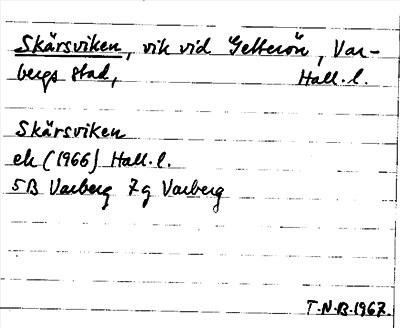 Skärsviken, vik vid Getterön, Var-
bergs stad, Hall. l.
Skärsviken
ek (1966) Hall. l.
5B Varberg 7g Varberg
T.N.B. 1967